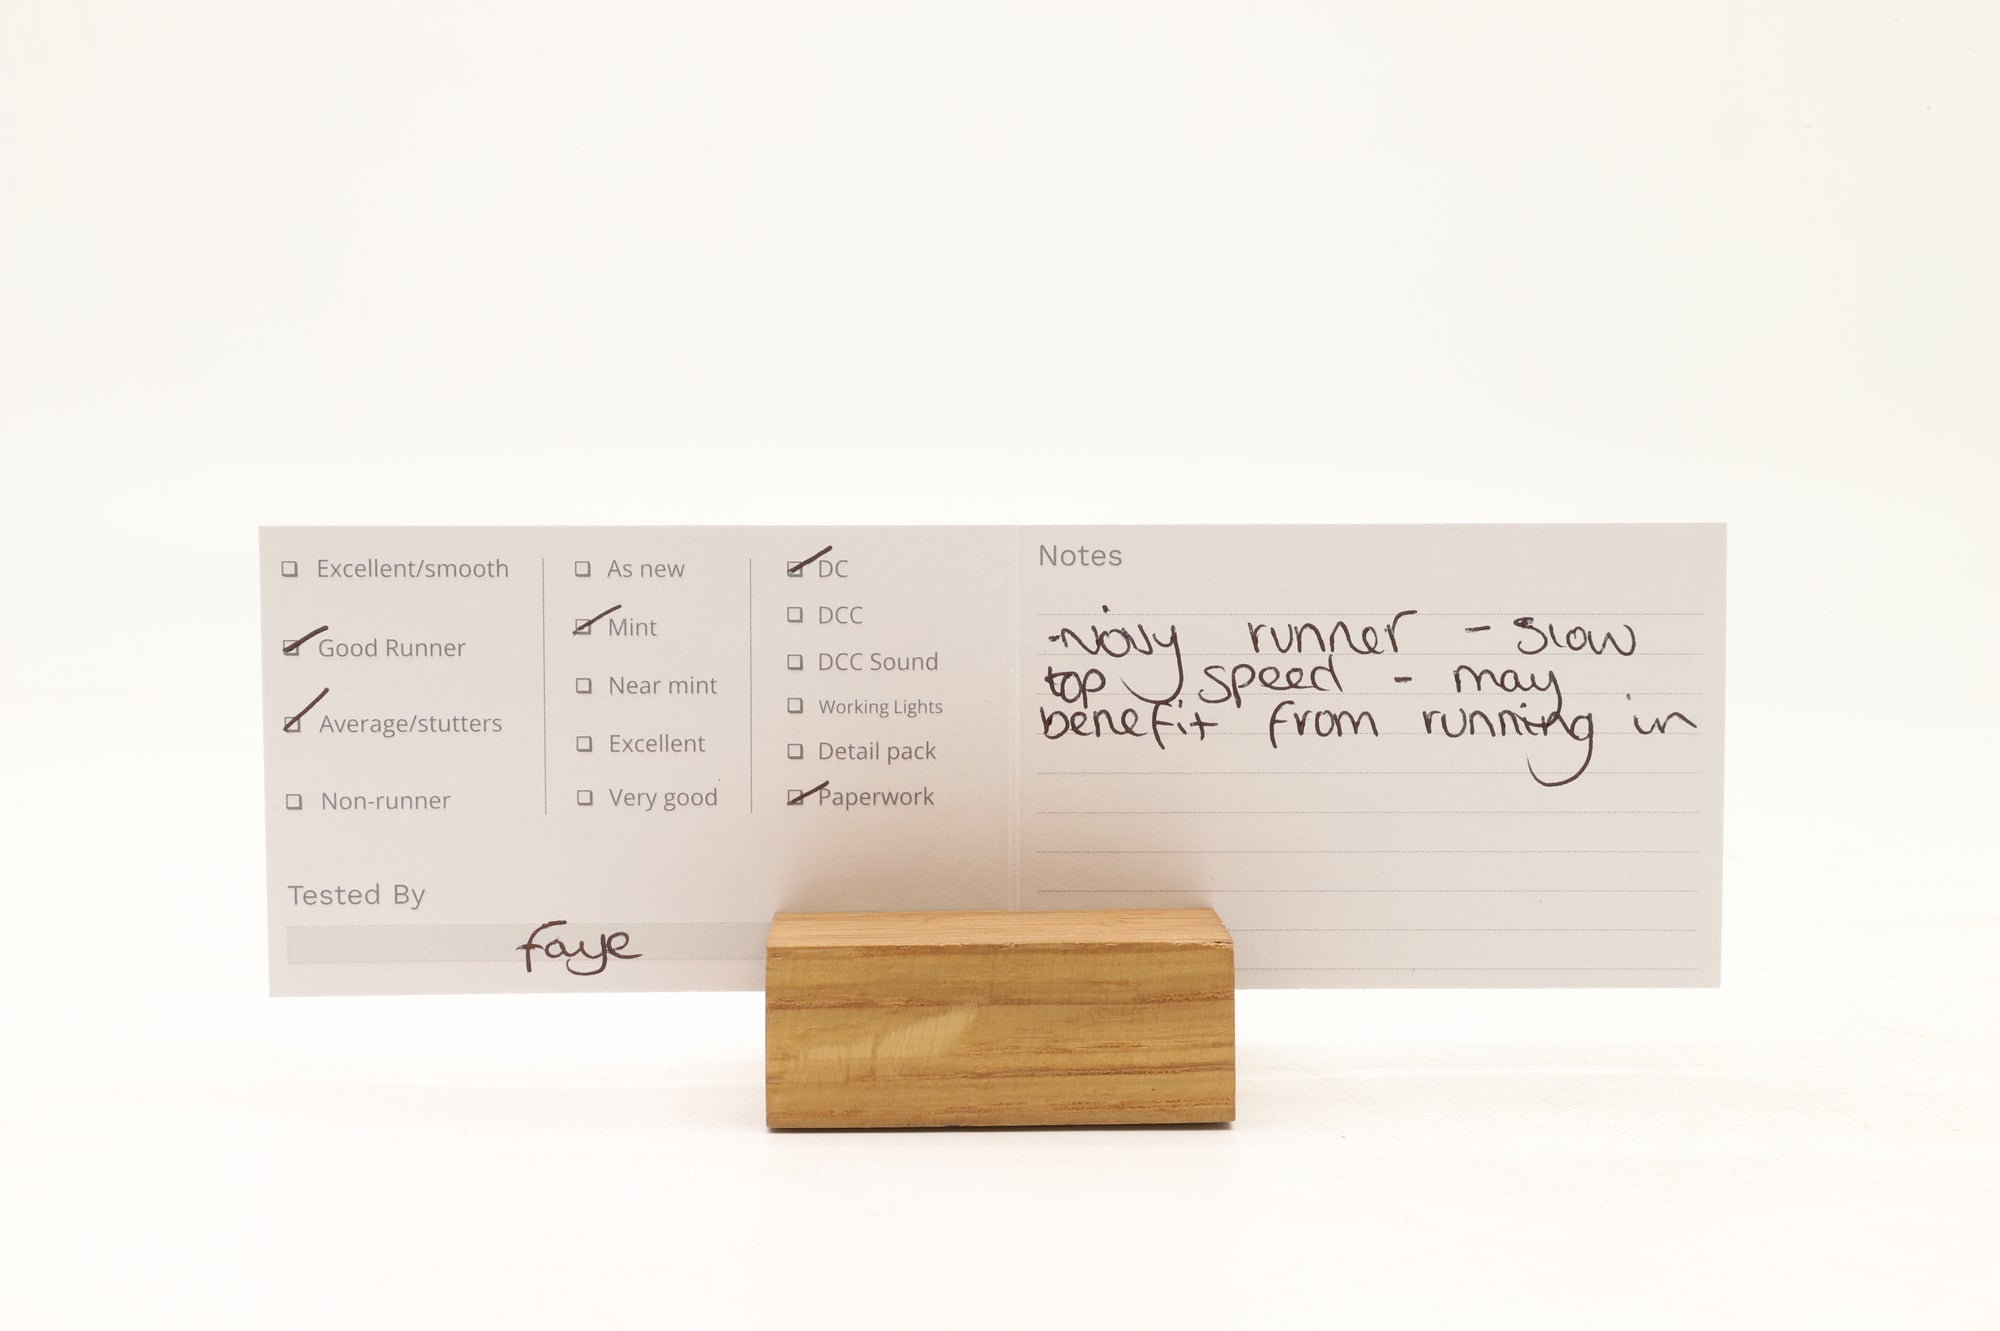 Excellent/smooth
Good Runner
Average/stutters
Non-runner
As new
Mint
Near mint
Excellent
Very good
DC
DCC
DCC Sound
Working Lights
Detail pack
Paperwork
Tested By
Faye
Notes
runner - slow
top speed - may
benefit from running in